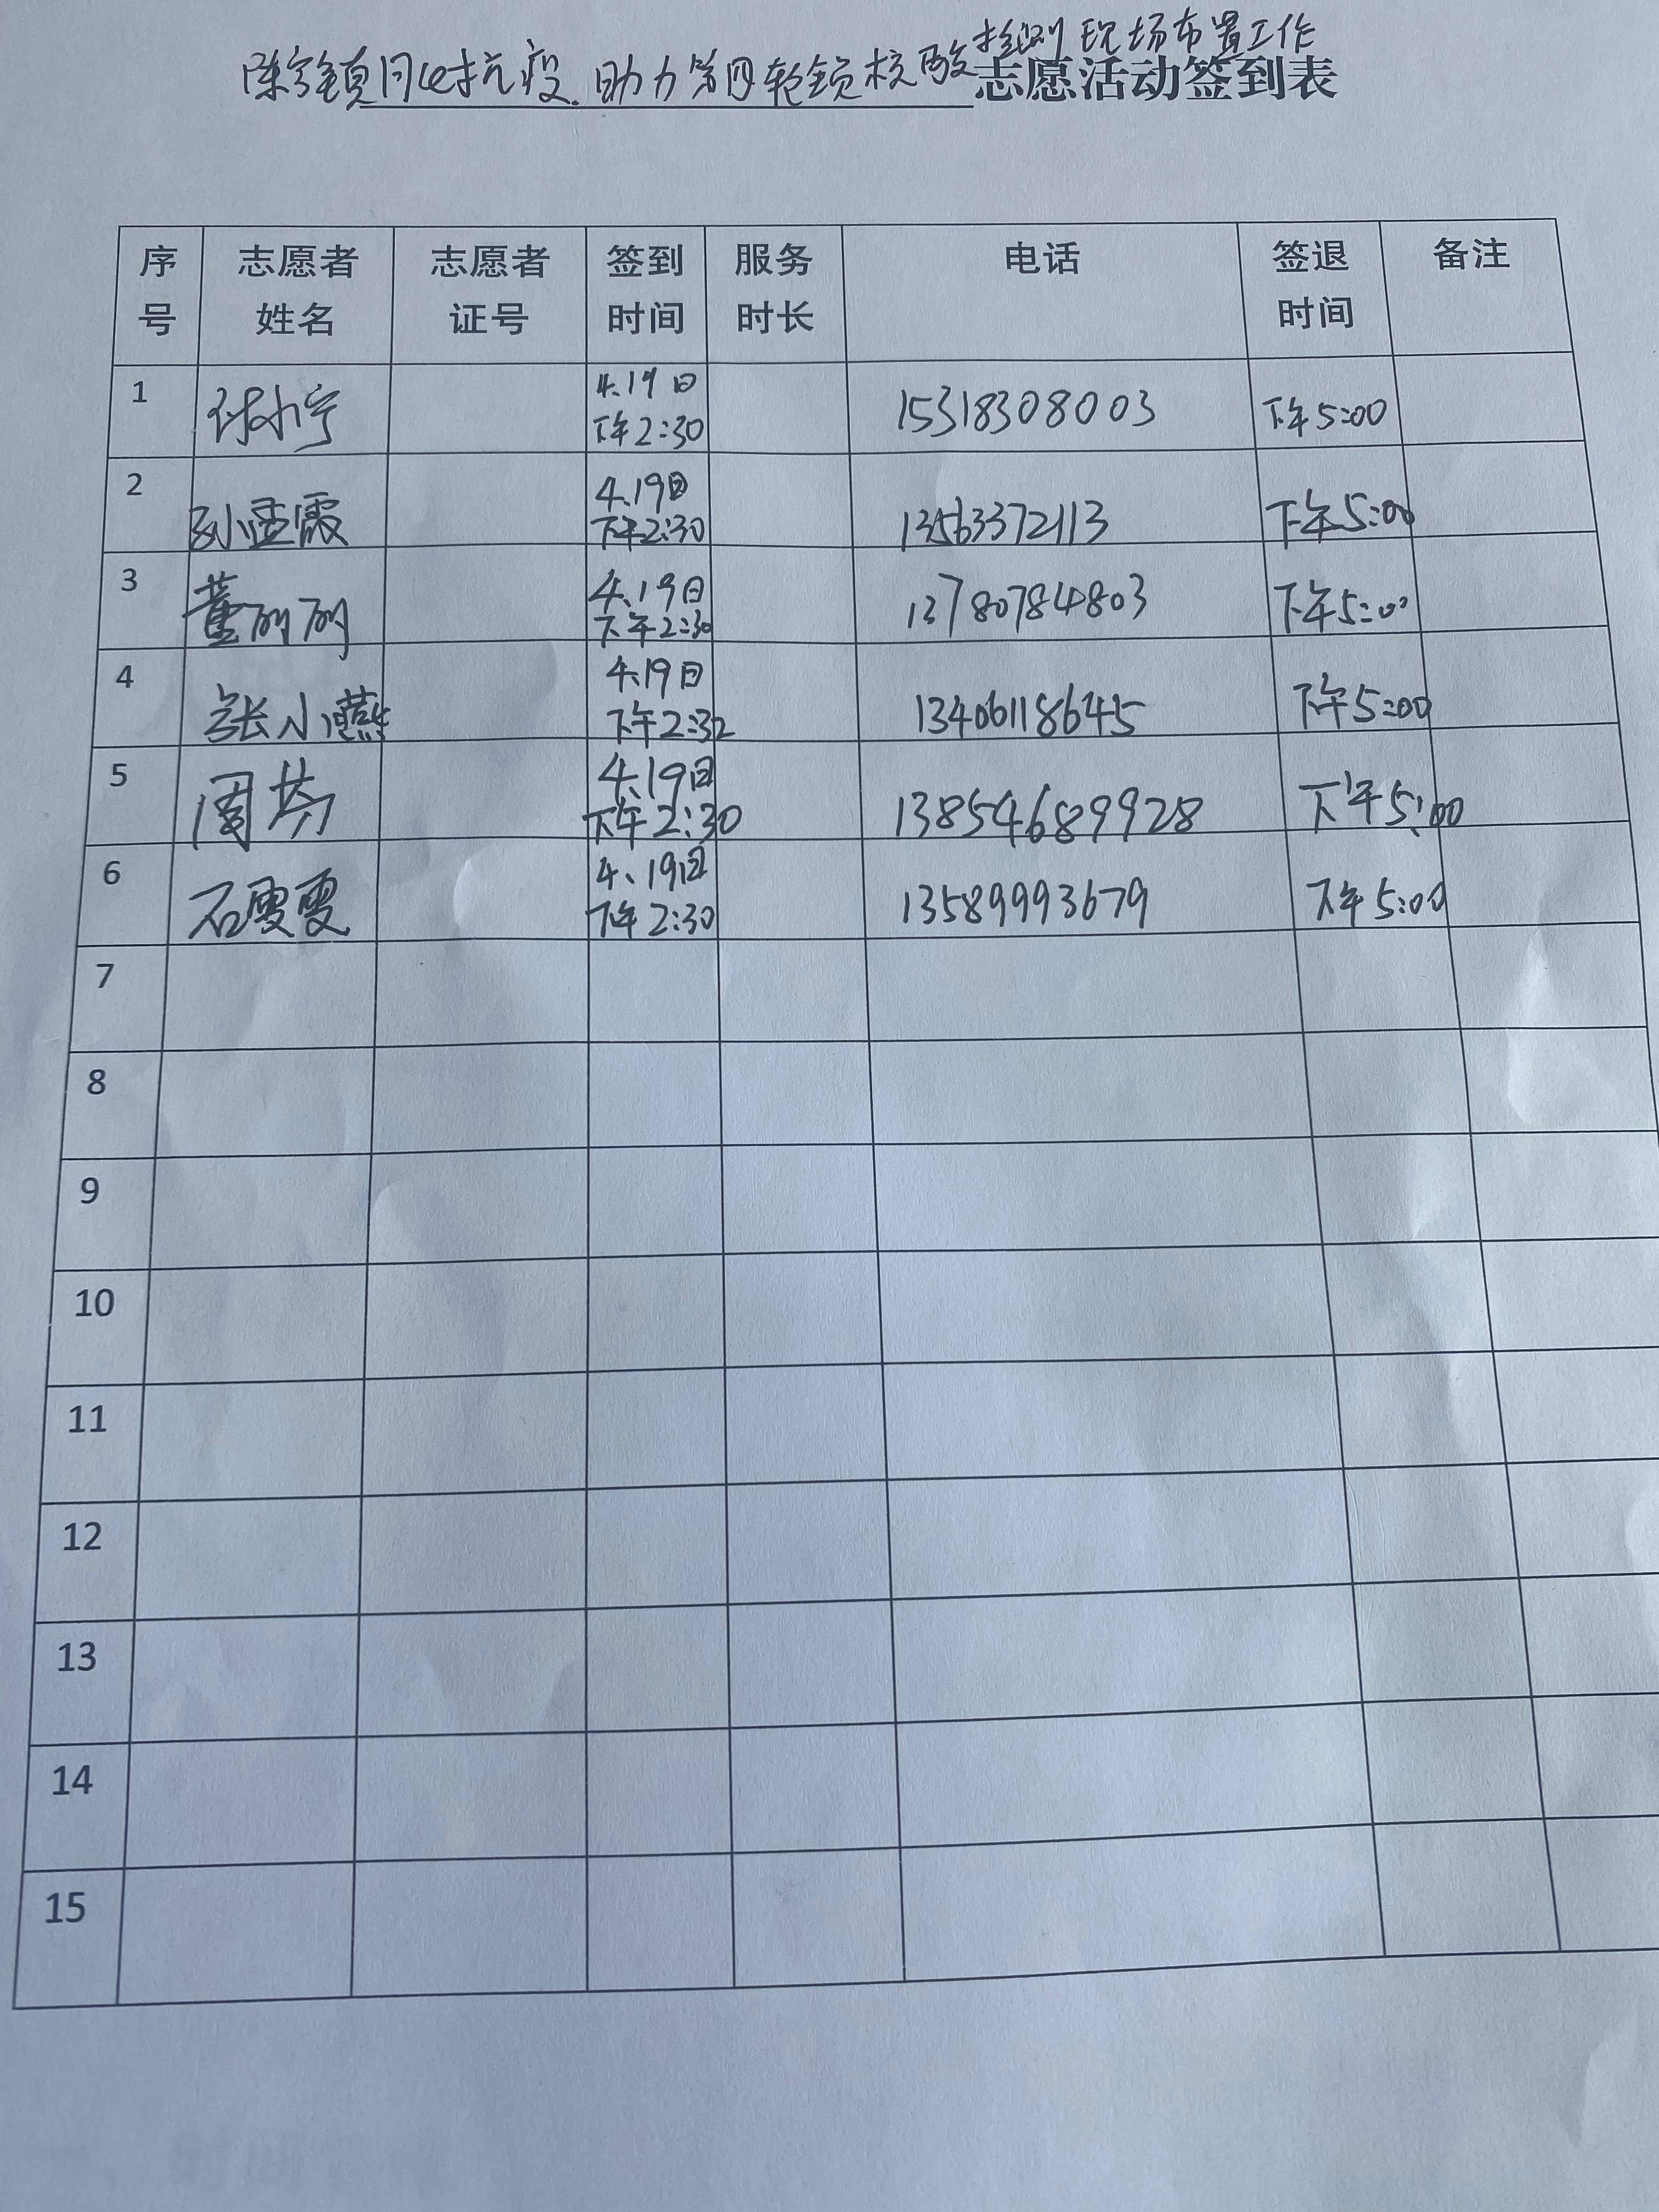 检测现场布置工作
镇同心抗疫.助力第四轮全员核酸志愿活动签到表
序号 志愿者姓名 志愿者证号 签到时间 服务时长 电话 签退时间 备注
1 付小宁 4.19日 下午2:30 15318308003 下午5:00
2 孙孟霞 4.19日 下午2:30 13563372113 下午5:00
3 董丽丽 4.19日 下午2:30 13780784803 下午5:00
4 张小燕 4.19日 下午2:32 13406118645 下午5:00
5 周芬 4.19日 下午2:30 13854689928 下午5:00
6 石雯雯 4.19日 下午2:30 13589993679 下午5:00
7
8
9
10
11
12
13
14
15